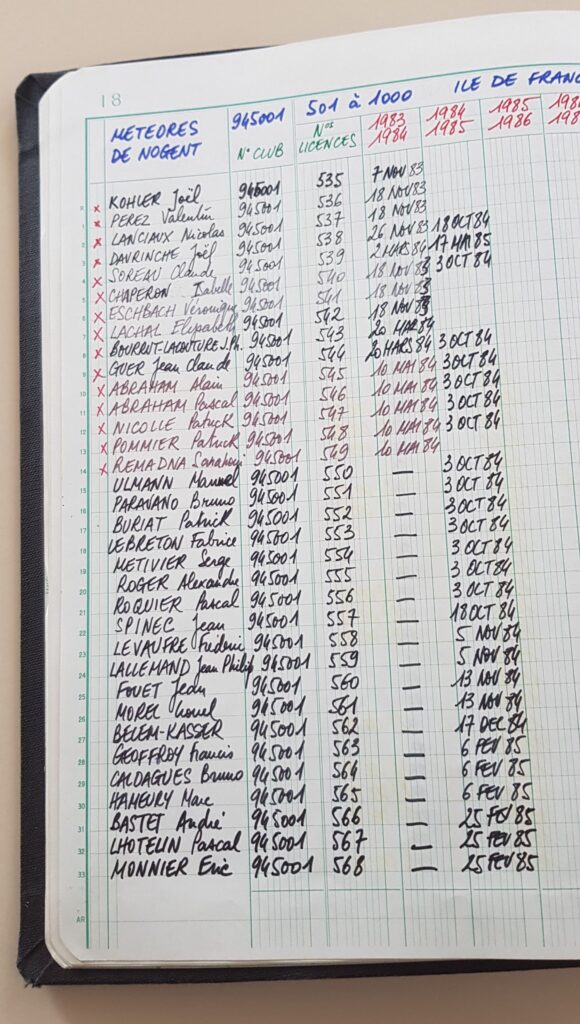 18
METEORES 945001 501 à 1000 ILE DE FRANC
DE NOGENT N° CLUB Nos LICENCES 1983 1984 1984 1985 1985 1986
x KOHLER Joël 945001 535 7 NOV 83
x PEREZ Valentin 945001 536 18 NOV 83
x LANCIAUX Nicolas 945001 537 18 NOV 83
x DAVRINCHE Joël 945001 538 26 NOV 83 18 OCT 84
x SOREAU Claude 945001 539 2 MARS 84 17 MAI 85
x CHAPERON Isabelle 945001 540 18 NOV 83 3 OCT 84
x ESCHBACH Véronique 945001 541 18 NOV 83
x LACHAL Elisabeth 945001 542 18 NOV 83
x BOURRUT-LACOUTURE J.Ph. 945001 543 20 MAR 84
x GUER Jean Claude 945001 544 20 MARS 84 3 OCT 84
x ABRAHAM Alain 945001 545 10 MAI 84 3 OCT 84
x ABRAHAM Pascal 945001 546 10 MAI 84 3 OCT 84
x NICOLLE Patrick 945001 547 10 MAI 84 3 OCT 84
x POMMIER Patrick 945001 548 10 MAI 84 3 OCT 84
x REMADNA 945001 549 10 MAI 84
ULMANN Manuel 945001 550 — 3 OCT 84
PARAVANO Bruno 945001 551 — 3 OCT 84
BURIAT Patrick 945001 552 — 3 OCT 84
LEBRETON Fabrice 945001 553 — 3 OCT 84
METIVIER Serge 945001 554 — 3 OCT 84
ROGER Alexandre 945001 555 — 3 OCT 84
ROQUIER Pascal 945001 556 — 3 OCT 84
SPINEC Jean 945001 557 — 18 OCT 84
LEVAUFRE Frédéric 945001 558 — 5 NOV 84
LALLEMAND Jean Philip 945001 559 — 5 NOV 84
FOUET Jean 945001 560 — 13 NOV 84
MOREL Lionel 945001 561 — 13 NOV 84
BELEM-KASSER 945001 562 — 17 DEC 84
GEOFFROY Francis 945001 563 — 6 FEV 85
CALDAGUES Bruno 945001 564 — 6 FEV 85
HAMEURY Marc 945001 565 — 6 FEV 85
BASTET André 945001 566 — 25 FEV 85
LHOTELIN Pascal 945001 567 — 25 FEV 85
MONNIER Eric 945001 568 — 25 FEV 85